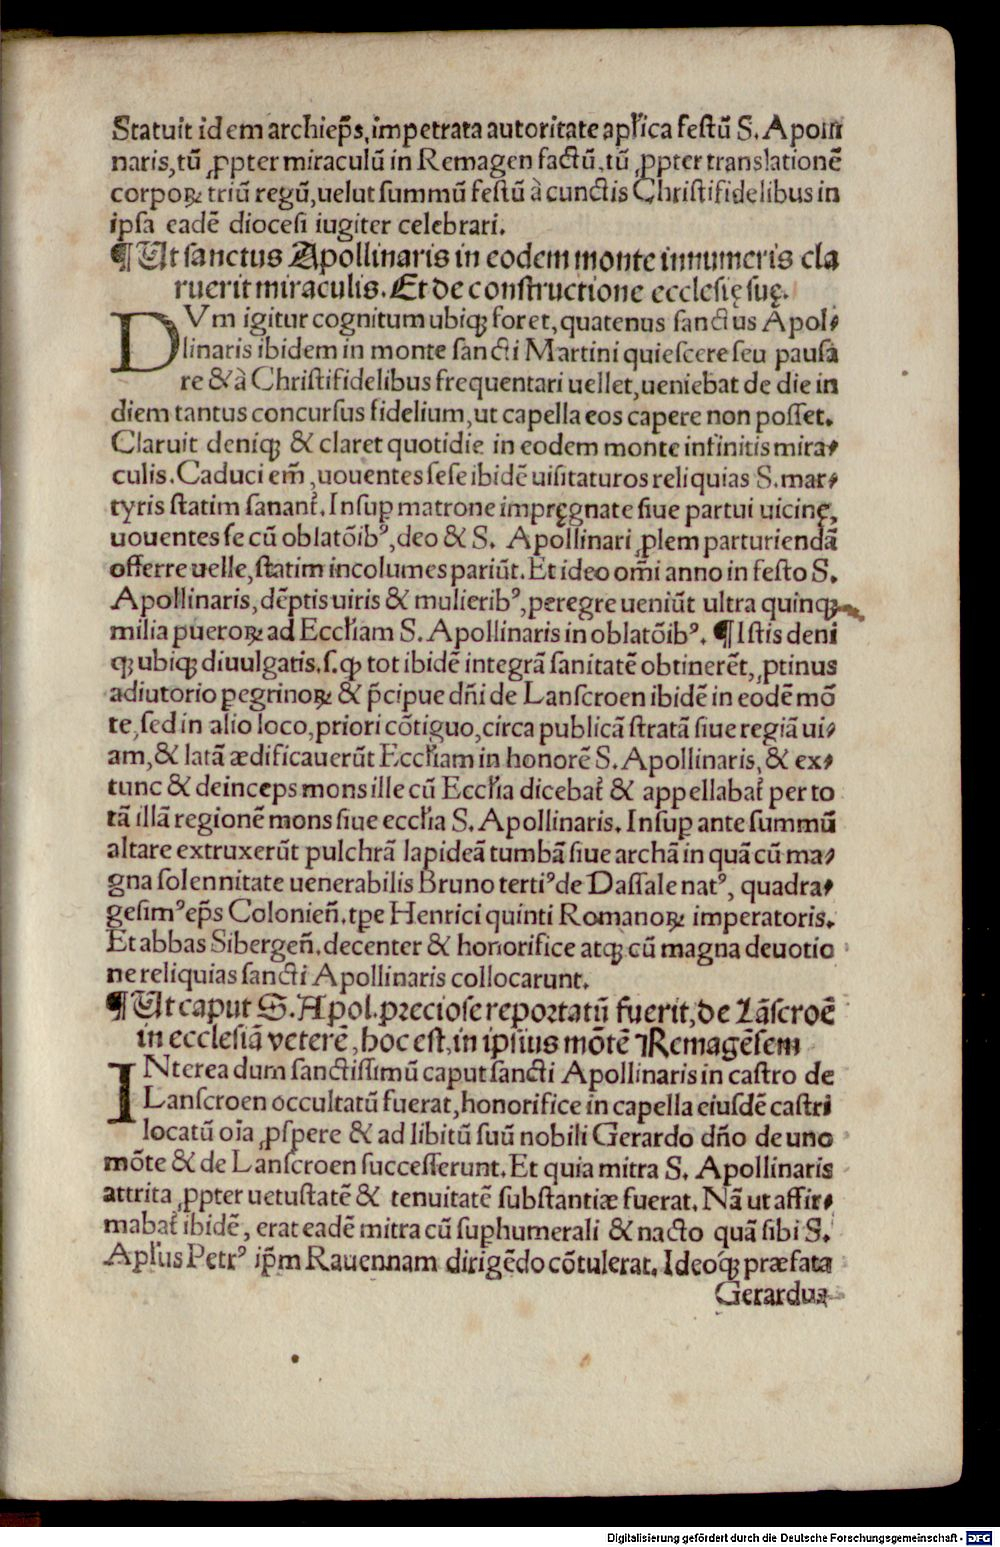 Statuit idem archiep̃s, impetrata autoritate apl'ica festũ S. Apolli
naris, tũ ꝓpter miraculũ in Remagen factũ, tũ ꝓpter translationẽ
corpoꝝ triũ regũ, uelut summũ festũ à cunctis Christifidelibus in
ipsa eadẽ diocesi iugiter celebrari.
¶ Ut sanctus Apollinaris in eodem monte innumeris cla
ruerit miraculis. Et de constructione ecclesię suę.
DVm igitur cognitum ubiqꝫ foret, quatenus sanctus Apol⸗
linaris ibidem in monte sancti Martini quiescere seu pausa
re & à Christifidelibus frequentari uellet, ueniebat de die in
diem tantus concursus fidelium, ut capella eos capere non posset.
Claruit deniqꝫ & claret quotidie in eodem monte infinitis mira⸗
culis. Caduci em̃, uouentes sese ibidẽ uisitaturos reliquias S. mar⸗
tyris statim sanant᷑. Insuꝑ matrone impręgnate siue partui uicinę,
uouentes se cũ oblatõibꝰ, deo & S. Apollinari ꝓlem parturiendã
offerre uelle, statim incolumes pariũt. Et ideo om̃i anno in festo S.
Apollinaris, dẽptis uiris & mulieribꝰ, peregre ueniũt ultra quinqꝫ
milia pueroꝝ ad Eccl'iam S. Apollinaris in oblatõibꝰ. ¶ Istis deni
qꝫ ubiqꝫ diuulgatis. s. ꝙ tot ibidẽ integrã sanitatẽ obtinerẽt, ꝓtinus
adiutorio pegrinoꝝ & p̃cipue dñi de Lanscroen ibidẽ in eodẽ mõ
te, sed in alio loco, priori cõtiguo, circa publicã stratã siue regiã ui⸗
am, & latã ædificauerũt Eccl'iam in honorẽ S. Apollinaris, & ex⸗
tunc & deinceps mons ille cũ Eccl'ia dicebat᷑ & appellabat᷑ per to
tã illã regionẽ mons siue eccl'ia S. Apollinaris. Insuꝑ ante summũ
altare extruxerũt pulchrã lapideã tumbã siue archã in quã cũ ma⸗
gna solennitate uenerabilis Bruno tertiꝰ de Dassale natꝰ, quadra⸗
gesimꝰ ep̃s Colonieñ. tꝑe Henrici quinti Romanoꝝ imperatoris.
Et abbas Sibergeñ. decenter & honorifice atqꝫ cũ magna deuotio
ne reliquias sancti Apollinaris collocarunt.
¶ Ut caput S. Apol. preciose reportatũ fuerit, de Lãscroẽ
in ecclesiã veterẽ, hoc est, in ipsius mõtẽ Remagẽsem
INterea dum sanctissimũ caput sancti Apollinaris in castro de
Lanscroen occultatũ fuerat, honorifice in capella eiusdẽ castri
locatũ oĩa ꝓspere & ad libitũ suũ nobili Gerardo dño de uno
mõte & de Lanscroen successerunt. Et quia mitra S. Apollinaris
attrita ꝓpter uetustatẽ & tenuitatẽ substantiæ fuerat. Nã ut affir⸗
mabat᷑ ibidẽ, erat eadẽ mitra cũ suꝑhumerali & nacto quã sibi S.
Apl'us Petrꝰ ip̃m Rauennam dirigẽdo cõtulerat. Ideoqꝫ præfata
Gerardus
Digitalisierung gefördert durch die Deutsche Forschungsgemeinschaft - DFG